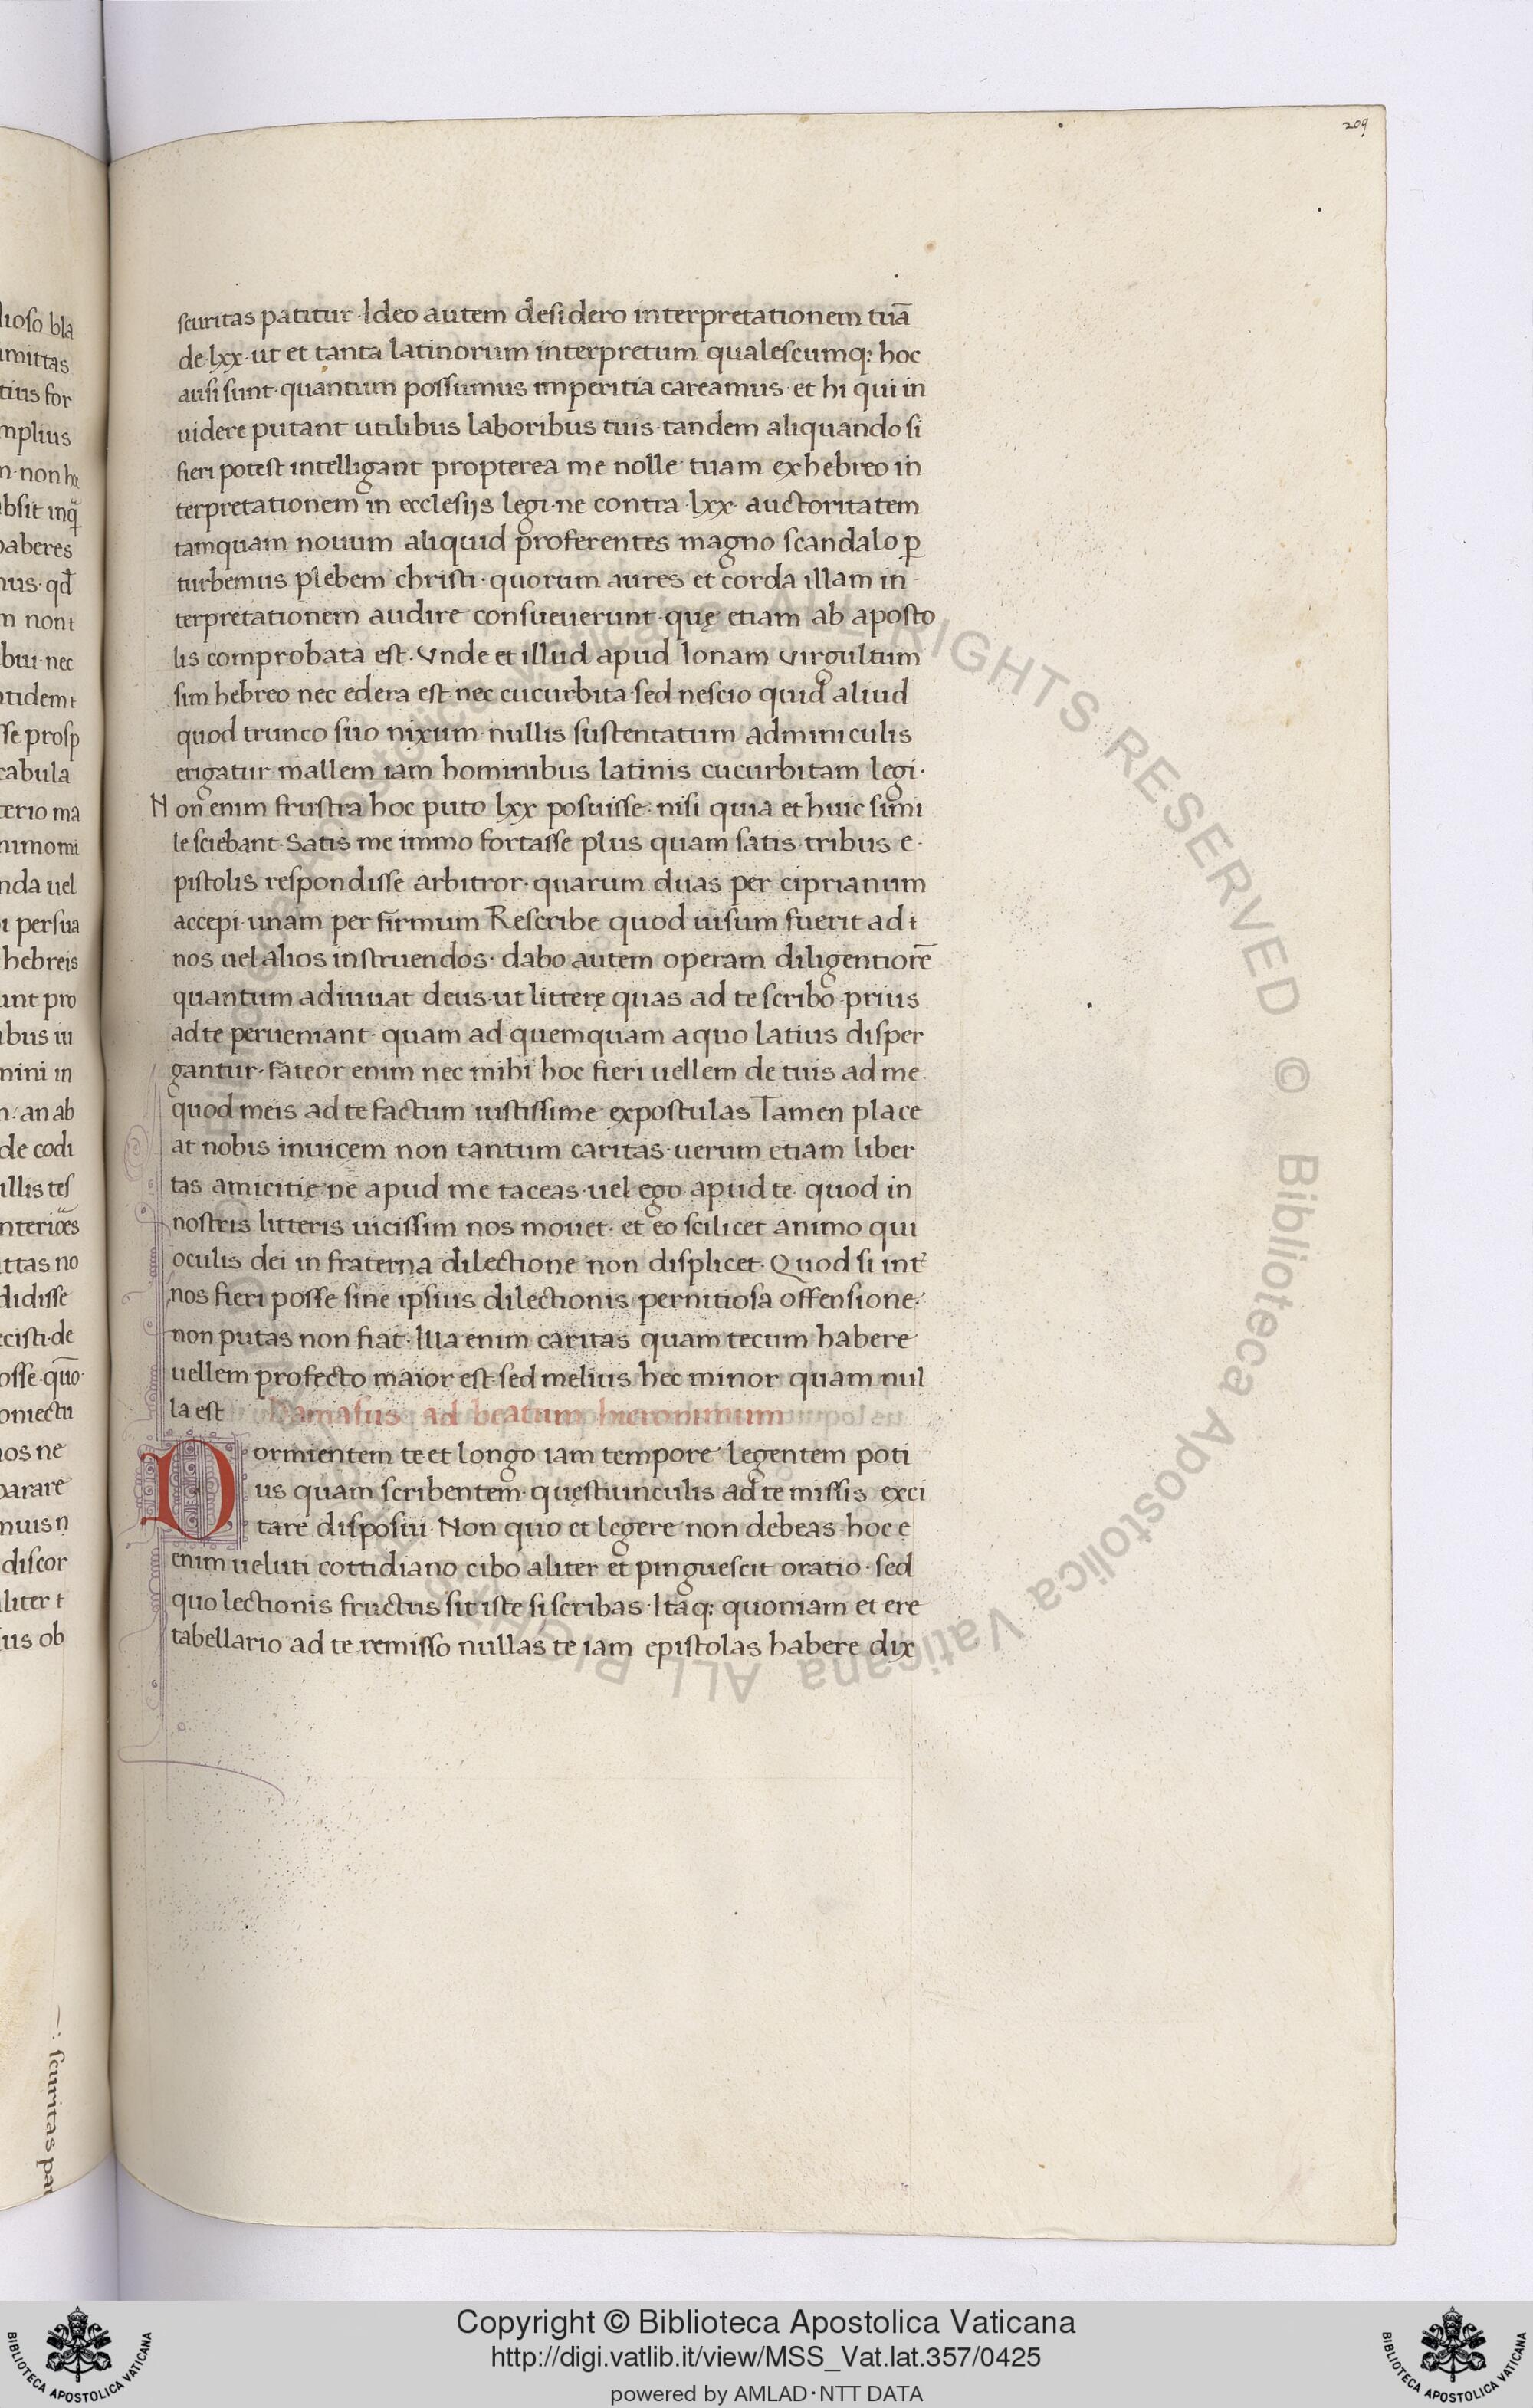 209
scuritas patitur · Ideo autem desidero interpretationem tuā
de · lxx · ut et tanta latinorum interpretum qualescumq; hoc
ausi sunt · quantum possumus imperitia careamus · et hi qui in
uidere putant utilibus laboribus tuis · tandem aliquando si
fieri potest intelligant propterea me nolle tuam ex hebreo in
terpretationem in ecclesijs legi · ne contra · lxx · auctoritatem
tamquam nouum aliquid proferentes magno scandalo ꝑ
turbemus plebem christi · quorum aures et corda illam in
terpretationem audire consueuerunt · quę etiam ab aposto
lis comprobata est · Vnde et illud apud Ionam virgultum
sim hebreo nec edera est nec cucurbita · sed nescio quid aliud
quod trunco suo nixum · nullis sustentatum adminiculis
erigatur · mallem iam hominibus latinis cucurbitam legi ·
Non enim frustra hoc puto lxx posuisse · nisi quia et huic simi
le sciebant · Satis me immo fortasse plus quam satis · tribus e
pistolis respondisse arbitror · quarum duas per ciprianum
accepi · unam per firmum Rescribe quod uisum fuerit ad ı
nos uel alios instruendos · dabo autem operam diligentiorē
quantum adiuuat deus · ut litterę quas ad te scribo prius
ad te perueniant · quam ad quemquam a quo latius disper
gantur · fateor enim nec mihi hoc fieri uellem de tuis ad me
quod meis ad te factum iustissime expostulas Tamen place
at nobis inuicem non tantum caritas · uerum etiam liber
tas amicitię · ne apud me taceas · uel ego apud te · quod in
nostris litteris uicissim nos mouet · et eo scilicet animo qui
oculis dei in fraterna dilectione non displicet · Quod si int̄
nos fieri posse sine ipsius dilectionis pernitiosa offensione ·
non putas non fiat · Illa enim caritas quam tecum habere
uellem profecto maior est · sed melius hec minor quam nul
la est Damasus ad beatum hieronimum
Dormientem te et longo iam tempore legentem poti
us quam scribentem · quęstiunculis ad te missis exci
tare disposui · Non quo et legere non debeas · hoc e
enim ueluti cottidiano cibo aliter et pinguescit oratio · sed
quo lectionis fructus sit iste si scribas · Itaq; quoniam et ere
tabellario ad te remisso nullas te iam epistolas habere dix
lioso bla
mittas
titis for
mplius
n · non
bsit inq
aberes
ius · qd
m non t
bui · nec
tidem t
se prosp
cabula
terio ma
nimo mi
nda uel
i persua
hebreis
unt pro
ibus ui
mini in
n · an ab
de codi
illis tes
ittas no
didisse
ecisti · de
osse · quō
oniectu
os ne
parare
muis n
discor
liter t
ius ob
scuritas pa
ALL RIGHTS RESERVED © Biblioteca Apostolica Vaticana
Copyright © Biblioteca Apostolica Vaticana
http://digi.vatlib.it/view/MSS_Vat.lat.357/0425
powered by AMLAD · NTT DATA
BIBLIOTECA APOSTOLICA VATICANA
BIBLIOTECA APOSTOLICA VATICANA